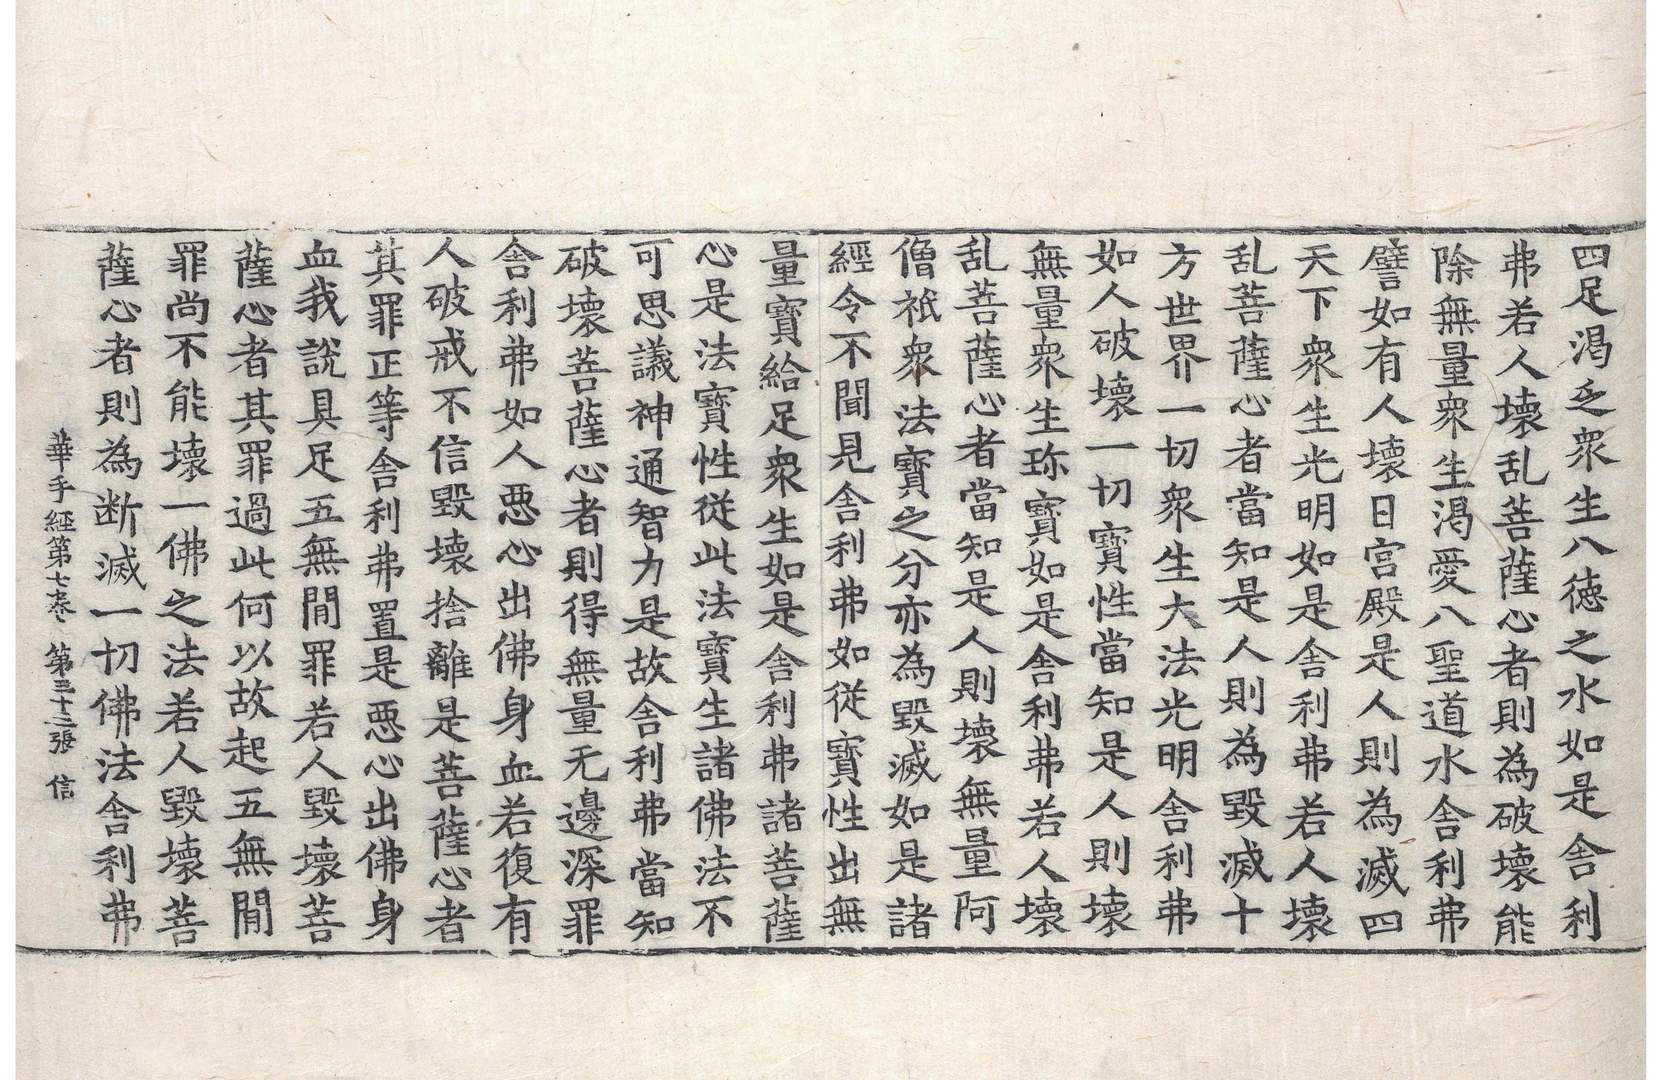 四足渇乏衆生八徳之水如是舍利
弗若人壊乱菩薩心者則為破壊能
除無量衆生渇愛八聖道水舍利弗
譬如有人壊日宮殿是人則為滅四
天下衆生光明如是舍利弗若人壊
乱菩薩心者當知是人則為毀滅十
方世界一切衆生大法光明舍利弗
如人破壊一切寶性當知是人則壊
無量衆生珎寶如是舍利弗若人壊
乱菩薩心者當知是人則壊無量阿
僧祇衆法寶之分亦為毀滅如是諸
經令不聞見舍利弗如従寶性出無
量寶給足衆生如是舍利弗諸菩薩
心是法寶性従此法寶生諸佛法不
可思議神通智力是故舍利弗當知
破壊菩薩心者則得無量无邊深罪
舍利弗如人悪心出佛身血若復有
人破戒不信毀壊捨離是菩薩心者
其罪正等舍利弗置是悪心出佛身
血我說具足五無間罪若人毀壊菩
薩心者其罪過此何以故起五無間
罪尚不能壊一佛之法若人毀壊菩
薩心者則為断滅一切佛法舍利弗
華手經第七卷 第三十二張 信